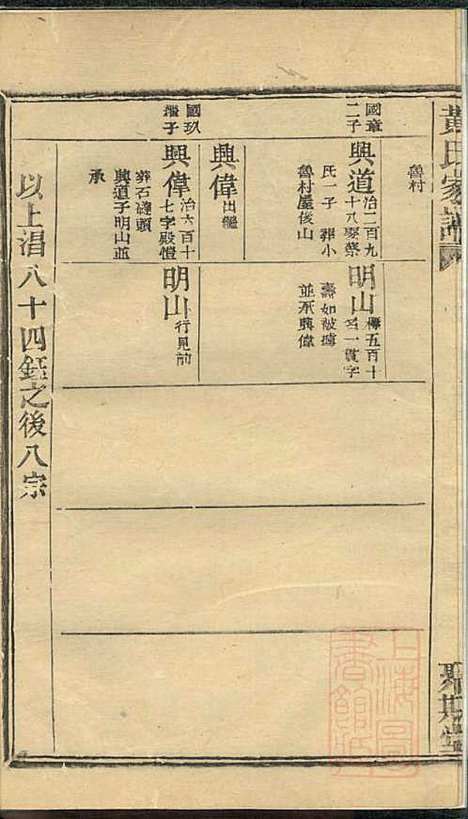 黃氏家譜
魯村
國章
二子
興道
治二百九
十八娶蔡
氏一子葬小
魯村屋後山
明山
傳五百十
名一貫字
壽如被擄
並承興偉
興偉
出繼
國玖
繼子
興偉
治六百十
七字殿愷
葬石磋頭
興道子明山並
承
明山
行見前
以上湻八十四鈺之後八宗
上海圖書館藏